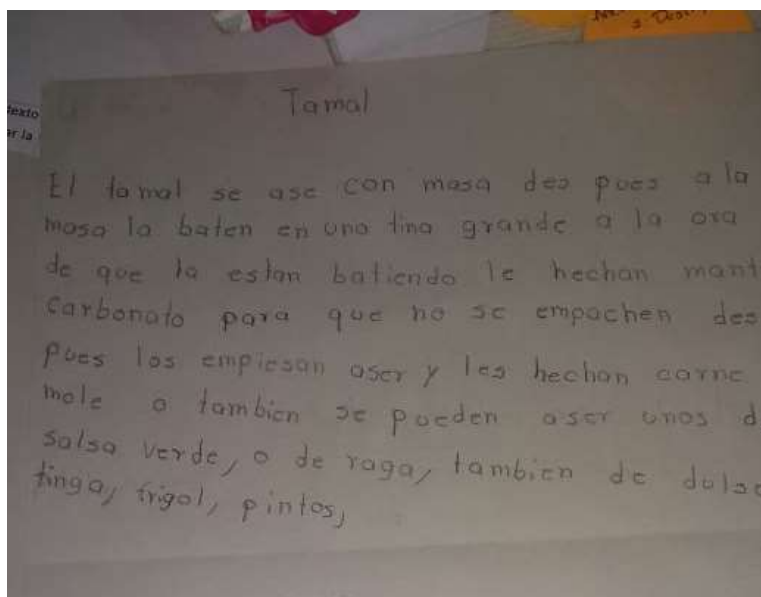 texto
ar la
s Desc
Tamal
El tamal se ase con masa des pues a la
masa la baten en una tina grande a la ora
de que la estan batiendo le hechan mant
carbonato para que no se empachen des
pues los empiesan aser y les hechan carne
mole o tambien se pueden aser unos d
salsa verde, o de raga, tambien de dulse
tinga, frigol, pintos,